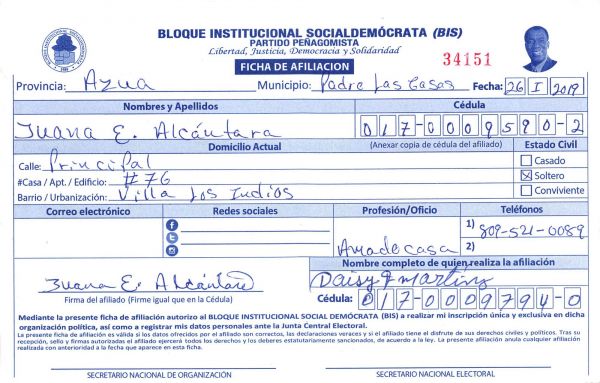 BLOQUE INSTITUCIONAL SOCIALDEMÓCRATA (BIS)
PARTIDO PEÑAGOMISTA
Libertad, Justicia, Democracia y Solidaridad
FICHA DE AFILIACION
34151
Provincia: Azua Municipio: Padre Las Casas Fecha: 26 I 2019
Nombres y Apellidos Cédula
Juana E. Alcántara 017-0009590-2
Domicilio Actual (Anexar copia de cédula del afiliado) Estado Civil
Calle: Principal Casado
#Casa / Apt. / Edificio: #76 Soltero
Barrio / Urbanización: Villa Los Indios Conviviente
Correo electrónico Redes sociales Profesión/Oficio Teléfonos
1) 809-521-0089
Amadecasa 2)
Nombre completo de quien realiza la afiliación
Juana E. Alcántara Daisy Martínz
Firma del afiliado (Firme igual que en la Cédula) Cédula: 017-0009794-0
Mediante la presente ficha de afiliación autorizo al BLOQUE INSTITUCIONAL SOCIAL DEMÓCRATA (BIS) a realizar mi inscripción única y exclusiva en dicha
organización política, así como a registrar mis datos personales ante la Junta Central Electoral.
La presente ficha de afiliación es válida si los datos ofrecidos por el afiliado son correctos, las declaraciones veraces y si el afiliado tiene el disfrute de sus derechos civiles y políticos. Tras su
recepción, sello y firmas autorizadas el afiliado ejercerá todos los derechos y los deberes estatutariamente sancionados, de acuerdo a la ley. La presente afiliación anula cualquier afiliación
realizada con anterioridad a la fecha que aparece en esta ficha.
SECRETARIO NACIONAL DE ORGANIZACIÓN SECRETARIO NACIONAL ELECTORAL